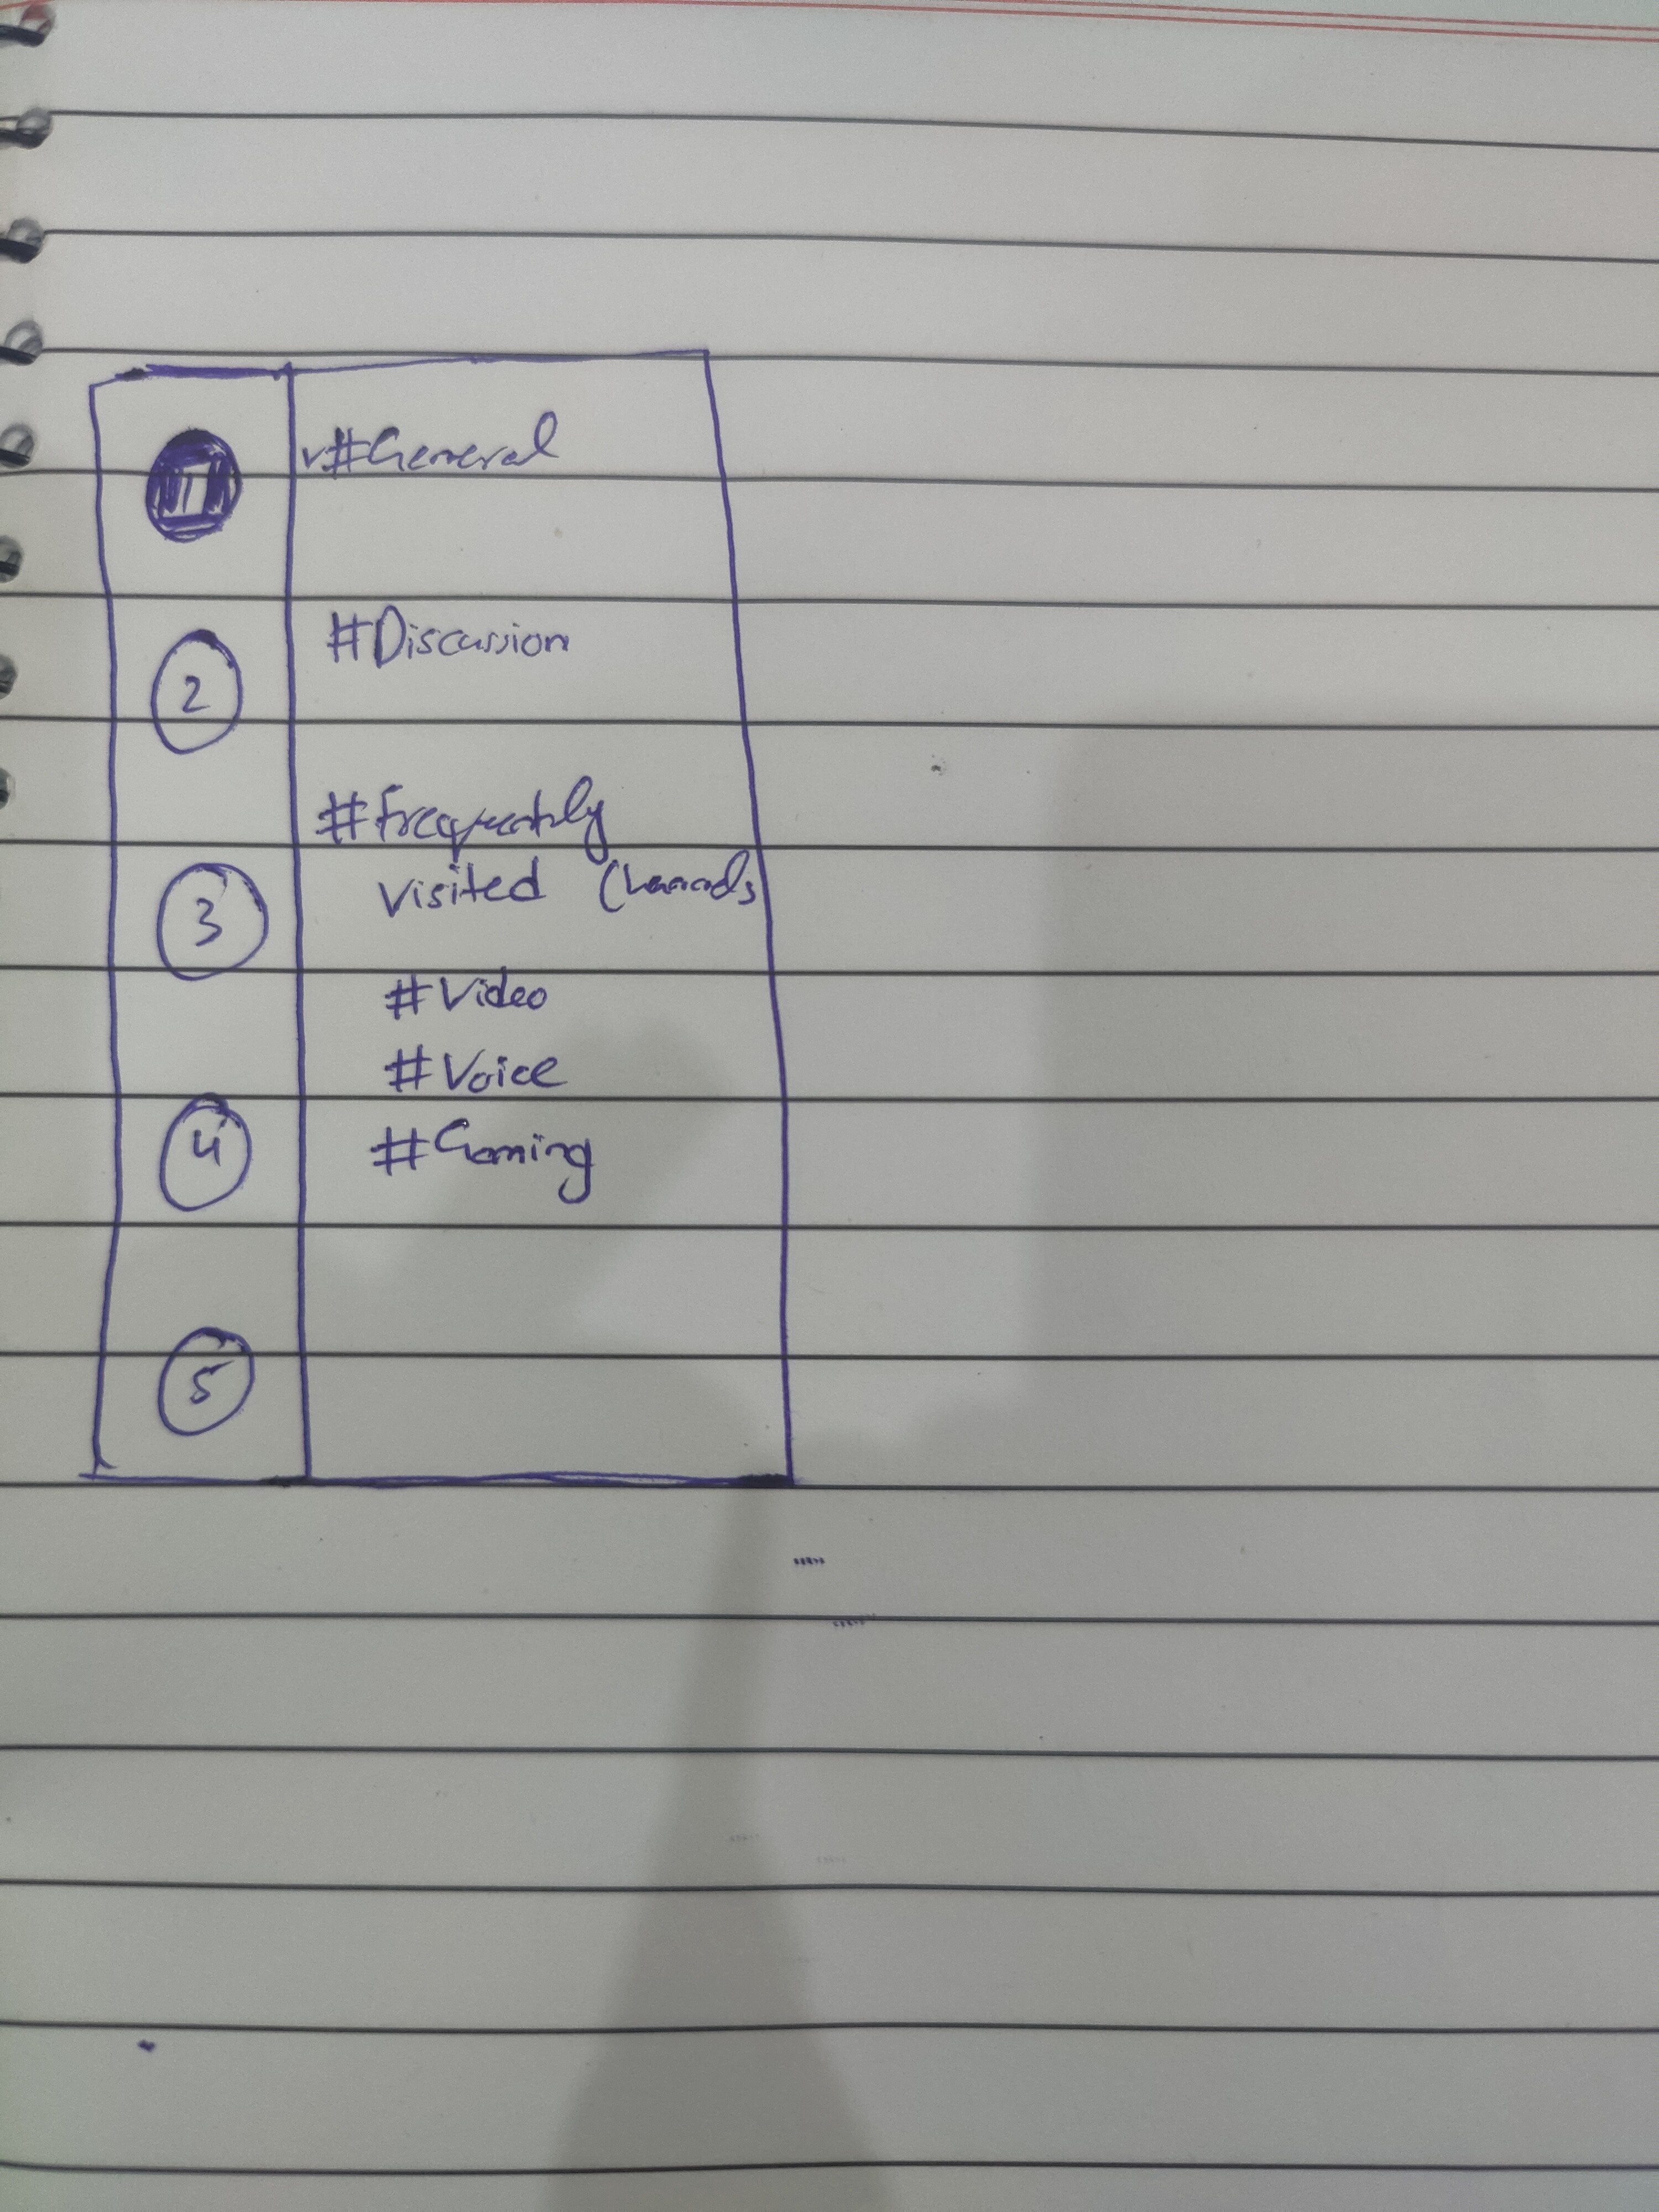 v#General
#Discussion
2
#Frequently
visited Channels
3
#Video
#Voice
4
#Gaming
5